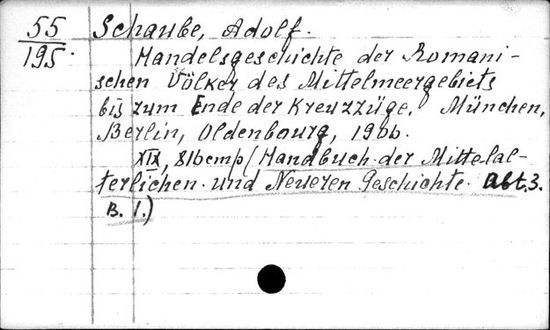 55 Schaube, Adolf.
195. Handelsgeschichte der Romani-
schen Völker des Mittelmeergebiets
bis zum Ende der Kreuzzüge. München,
Berlin, Oldenbourg, 1906.
XIX, 816 стр (Handbuch der Mittelal-
terlichen und Neueren Geschichte. Abt. 3.
B. 1.)